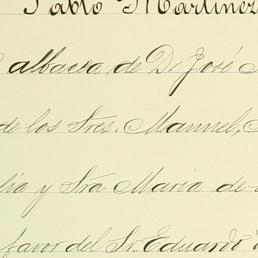 Pablo Martinez
albacea de D. José
de los Sres. Manuel,
y Sra. Maria de
favor del Sr. Eduardo